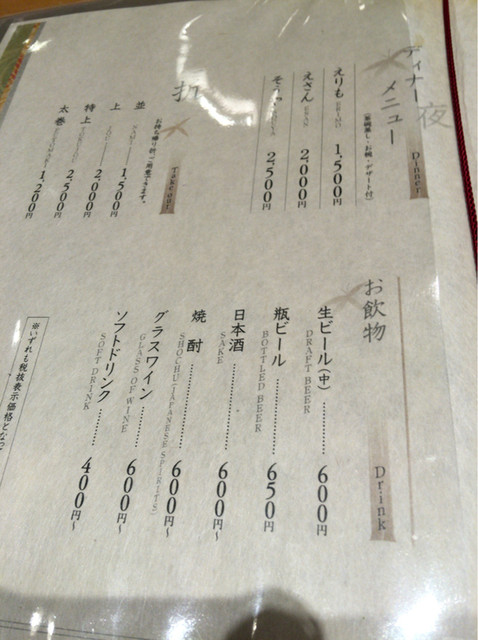 夜
ディナーメニュー
Dinner
(茶碗蒸し・お椀・デザート付)
えりも ERIMO 1,500円
えさん ESAN 2,000円
2,500円
折
Take out
お持ち帰り折、ご用意できます。
並 NAMI 1,500円
上 JOU 2,000円
特上 2,500円
太巻 1,200円
お飲物
Drink
生ビール(中) DRAFT BEER 600円
瓶ビール BOTTLED BEER 650円
日本酒 SAKE 600円
焼酎 SHOCHU(JAPANESE SPIRITS) 600円〜
グラスワイン GLASS OF WINE 600円〜
ソフトドリンク SOFT DRINK 400円〜
※いずれも税抜表示価格とな